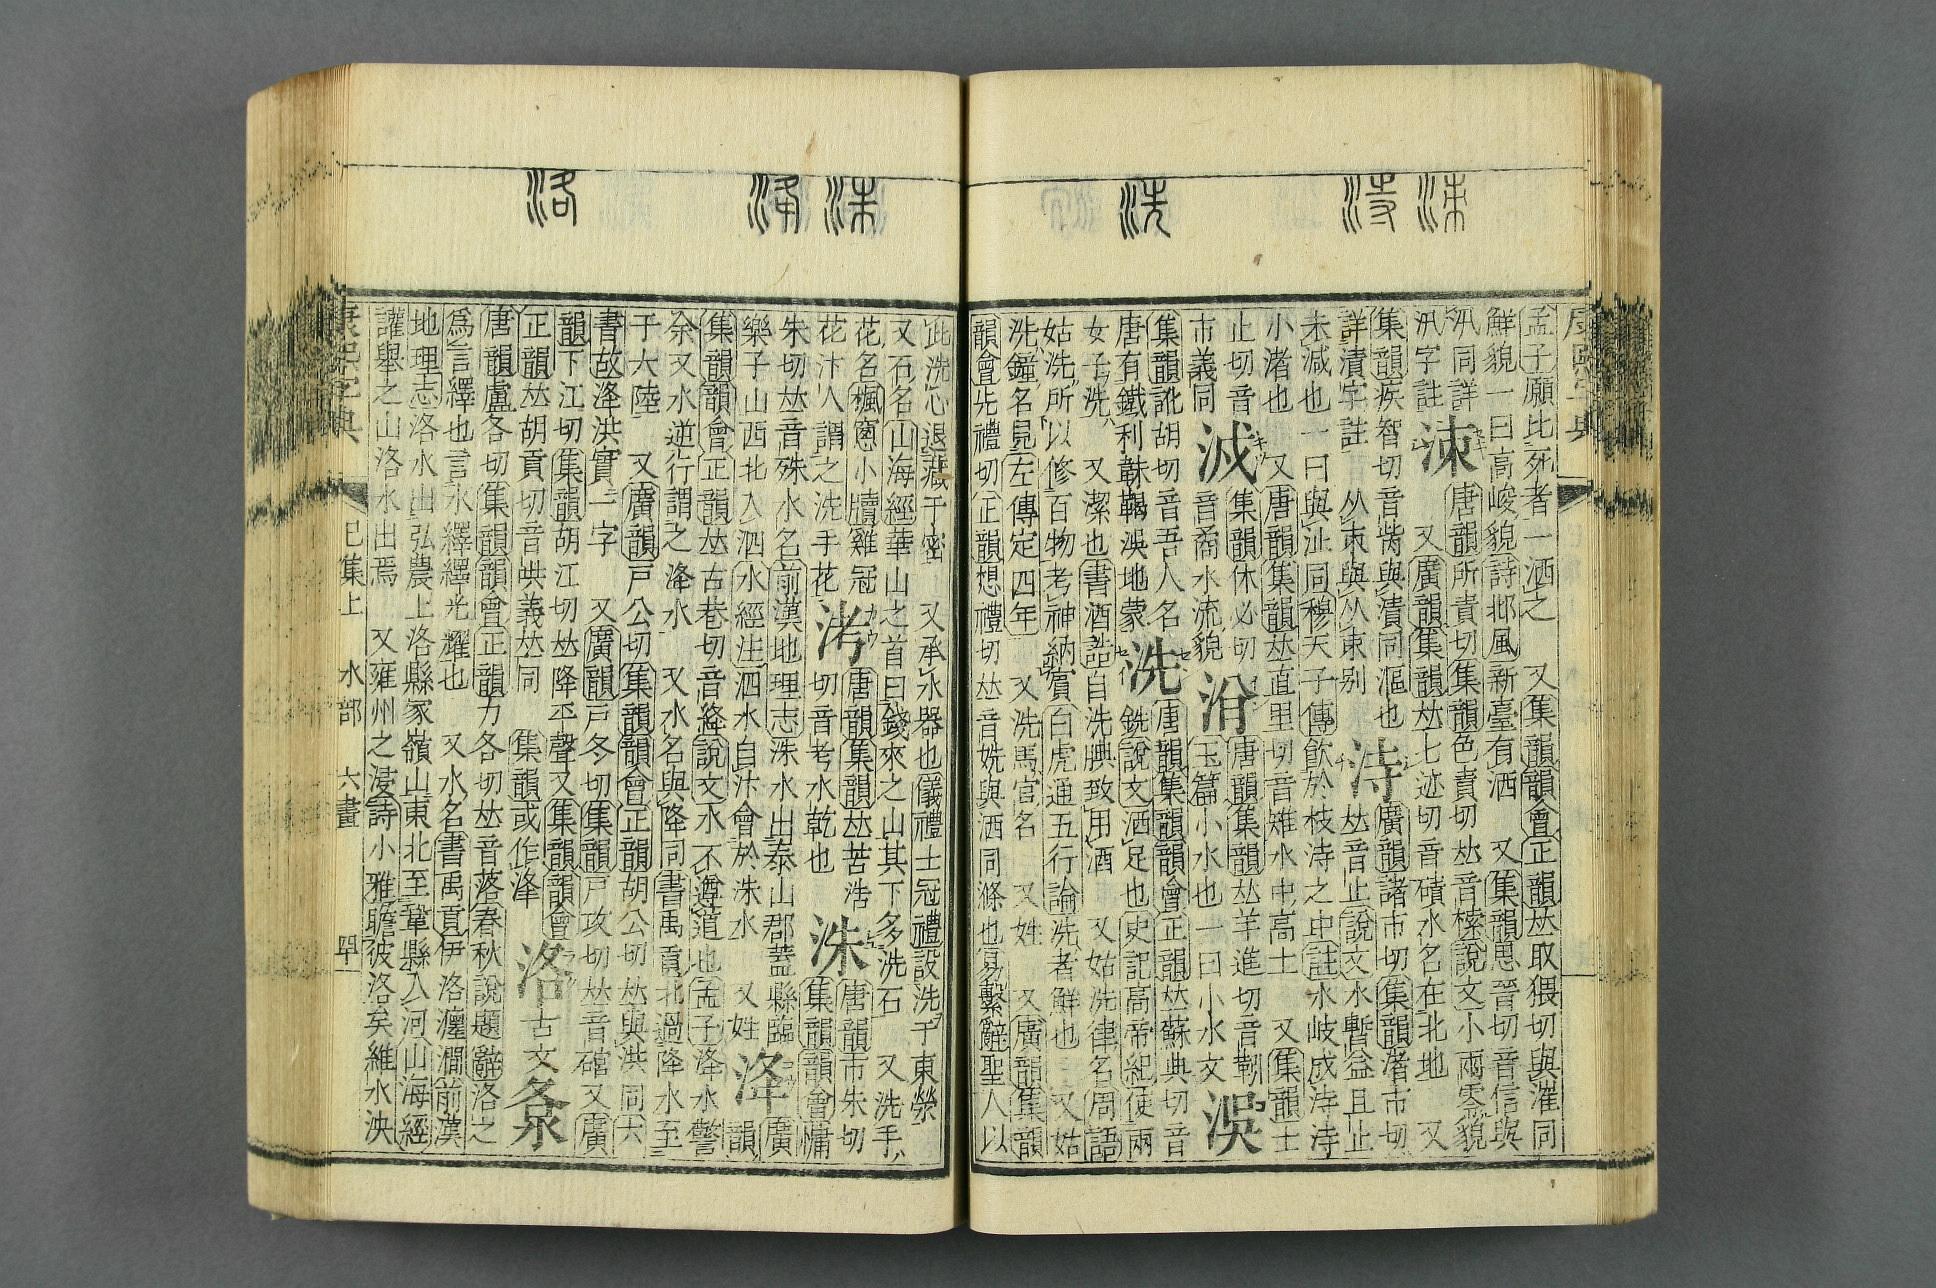 洓 洔 洗
孟子願比死者一洒之 又集韻韻會正韻𠀤取猥切與漼同
鮮貌一曰高峻貌詩邶風新臺有洒 又集韻思晉切音信與
汛同詳
汛字註
洓
唐韻所責切集韻色責切𠀤音㮶說文小雨零貌
又廣韻集韻𠀤七迹切音磧水名在北地 又
集韻疾智切音㱴與漬同漚也
詳漬字註 从朿與从東别
洔
廣韻諸市切集韻渚市切
𠀤音止說文水暫益且止
未減也一曰與沚同穆天子傳飲於枝洔之中註水岐成洔洔
小渚也 又唐韻集韻𠀤直里切音雉水中高土 又集韻士
止切音
市義同
集韻休必切
音矞水流貌
唐韻集韻𠀤羊進切音靷
玉篇小水也一曰小水文
洖
集韻訛胡切音吾人名
唐有鐵利靺鞨洖地蒙
洗
唐韻集韻韻會正韻𠀤蘇典切音
銑說文洒足也史記高帝紀使兩
女子洗 又潔也書酒誥自洗腆致用酒 又姑洗律名周語
姑洗所以修百物考神納賓白虎通五行論洗者鮮也 又姑
洗鐘名見左傳定四年 又洗馬官名 又姓 又廣韻集韻
韻會先禮切正韻想禮切𠀤音姺與洒同滌也易繫辭聖人以
洙 洚 洛
此洗心退藏于密 又承水器也儀禮士冠禮設洗于東榮
又石名山海經華山之首曰錢來之山其下多洗石 又洗手
花名楓窻小牘雞冠
花汴人謂之洗手花
洘
唐韻集韻𠀤苦浩
切音考水乾也
洙
唐韻市朱切
集韻韻會慵
朱切𠀤音殊水名前漢地理志洙水出泰山郡蓋縣臨
樂子山西北入泗水經注泗水自汴會於洙水 又姓
洚
廣
韻
集韻韻會正韻𠀤古巷切音絳說文水不遵道也孟子洚水警
余又水逆行謂之洚水 又水名與降同書禹貢北過降水至
于大陸 又廣韻戸公切集韻韻會正韻胡公切𠀤與洪同六
書故洚洪實一字 又廣韻戸冬切集韻戸攻切𠀤音䃔又廣
韻下江切集韻胡江切𠀤降平聲又集韻韻會
正韻𠀤胡貢切音哄義𠀤同 集韻或作洚
洛
古文
㓉
唐韻盧各切集韻韻會正韻力各切𠀤音落春秋說題辭洛之
爲言繹也言水繹繹光耀也 又水名書禹貢伊洛瀍澗前漢
地理志洛水出弘農上洛縣冢嶺山東北至鞏縣入河山海經
讙舉之山洛水出焉 又雍州之浸詩小雅瞻彼洛矣維水泱
康熙字典 巳集上 水部 六畫 四一